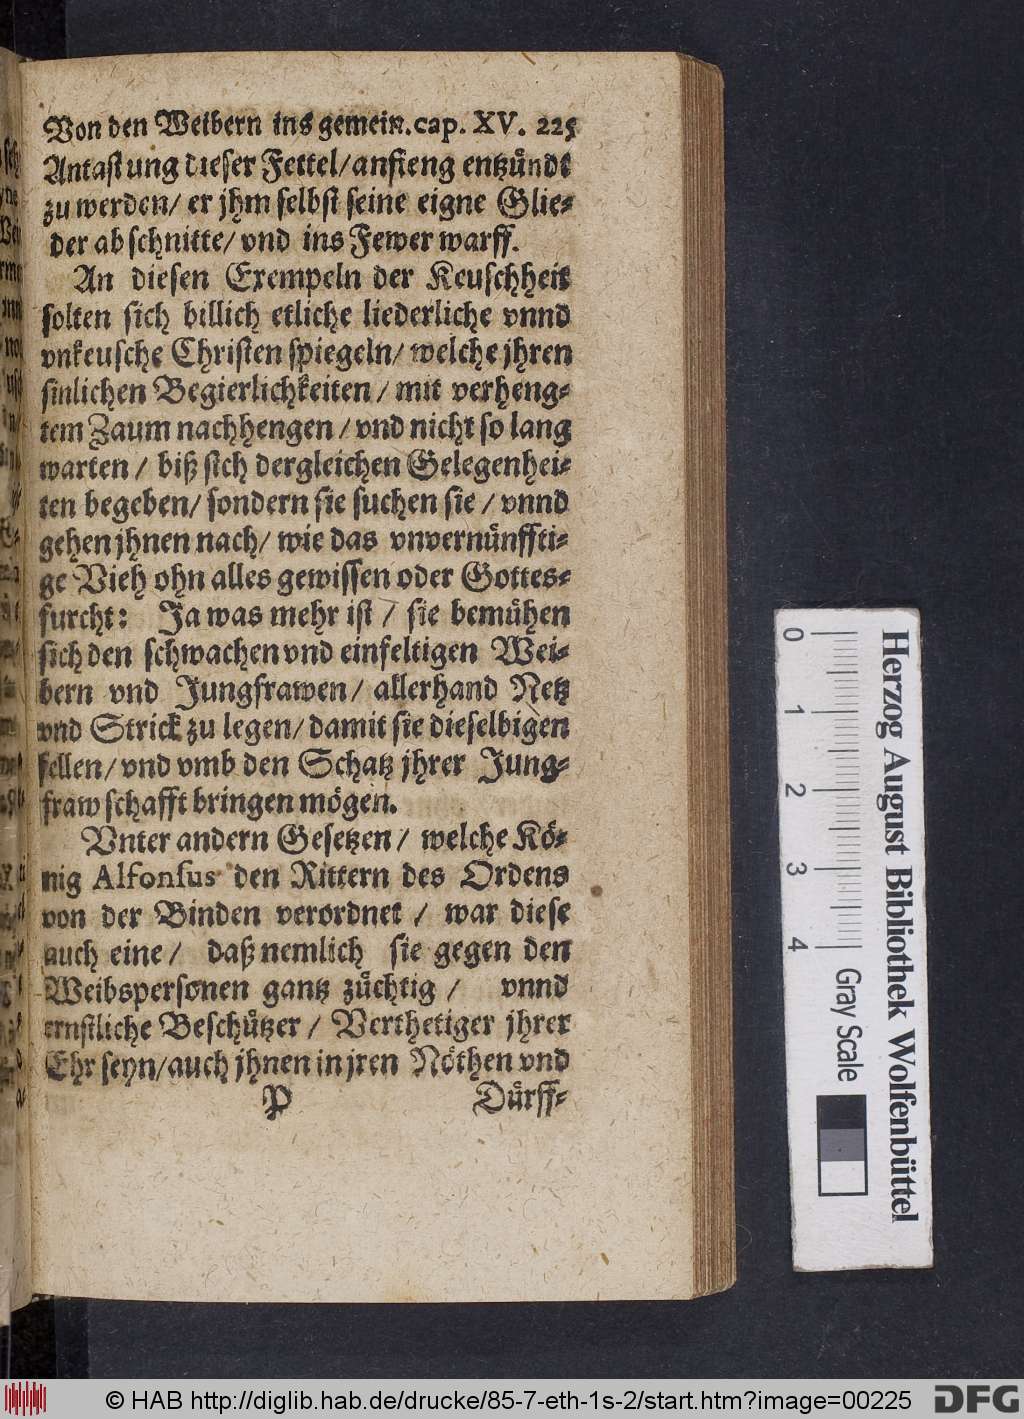 Von den Weibern ins gemein. cap. XV. 225
Antastung dieser Fettel/ anfieng entzündt
zu werden/ er jhm selbst seine eigne Glie-
der abschnitte/ vnd ins Fewer warff.
An diesen Exempeln der Keuschheit
solten sich billich etliche liederliche vnnd
vnkeusche Christen spiegeln/ welche jhren
sinlichen Begierlichkeiten / mit verheng-
tem Zaum nachhengen / vnd nicht so lang
warten / biß sich dergleichen Gelegenhei-
ten begeben/ sondern sie suchen sie / vnnd
gehen jhnen nach/ wie das vnvernünffti-
ge Vieh ohn alles gewissen oder Gottes-
furcht: Ja was mehr ist / sie bemühen
sich den schwachen vnd einfeltigen Wei-
bern vnd Jungfrawen/ allerhand Netz
vnd Strick zu legen/ damit sie dieselbigen
fellen/ vnd vmb den Schatz jhrer Jung-
frawschafft bringen mögen.
Vnter andern Gesetzen/ welche Kö-
nig Alfonsus den Rittern des Ordens
von der Binden verordnet / war diese
auch eine / daß nemlich sie gegen den
Weibspersonen gantz züchtig / vnnd
ernstliche Beschützer / Verthetiger jhrer
Ehr seyn/ auch jhnen in jren Nöthen vnd
P Dürff-
Herzog August Bibliothek Wolfenbüttel
0 1 2 3 4 Gray Scale
© HAB http://diglib.hab.de/drucke/85-7-eth-1s-2/start.htm?image=00225 DFG